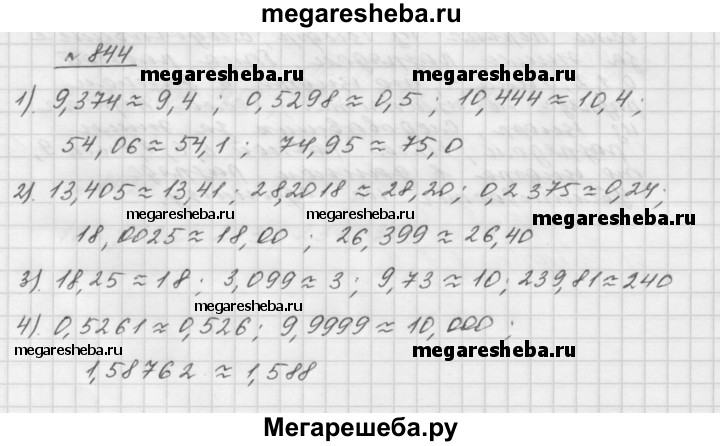 megaresheba.ru
№ 844
megaresheba.ru megaresheba.ru
1). 9,374 ≈ 9,4 ; 0,5298 ≈ 0,5 ; 10,444 ≈ 10,4 ;
54,06 ≈ 54,1 ; 74,95 ≈ 75,0
2). 13,405 ≈ 13,41 ; 28,2018 ≈ 28,20 ; 0,2375 ≈ 0,24 ;
megaresheba.ru megaresheba.ru megaresheba.ru
18,0025 ≈ 18,00 ; 26,399 ≈ 26,40
3). 18,25 ≈ 18 ; 3,099 ≈ 3 ; 9,73 ≈ 10 ; 239,81 ≈ 240
megaresheba.ru
4). 0,5261 ≈ 0,526 ; 9,9999 ≈ 10,000 ;
megaresheba.ru megaresheba.ru
1,58762 ≈ 1,588
Мегарешеба.ру